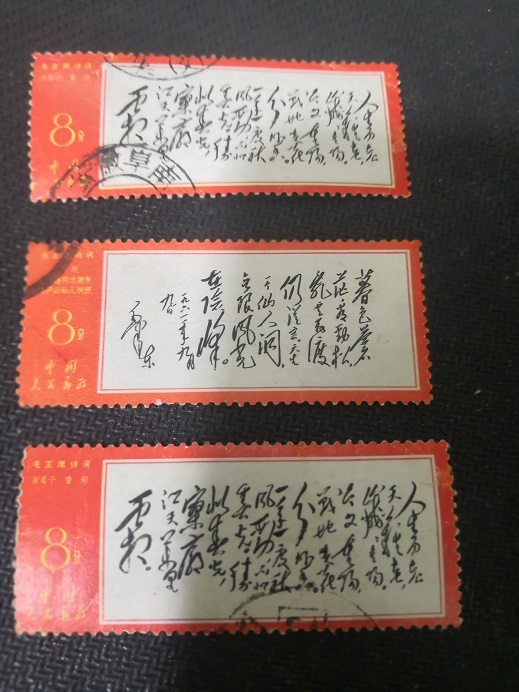 毛主席诗词
8分
中国
人生易老
天难老
岁岁重阳
今又重阳
战地黄花
分外香
一年一度秋
风劲不似
春光勝
似春光
寥廓
江天万里
霜
毛主席诗词
8分
中国
人民邮政
暮色蒼
茫看劲松
乱云飞渡
仍従容天生
一个仙人洞
无限风光
在险峰
一九六一年九月
九日
毛泽东
毛主席诗词
采桑子 重阳
8分
中国
人民邮政
人生易老
天难老
岁岁重阳
今又重阳
战地黄花
分外香
一年一度秋
风劲不似
春光勝
似春光
寥廓
江天万里
霜